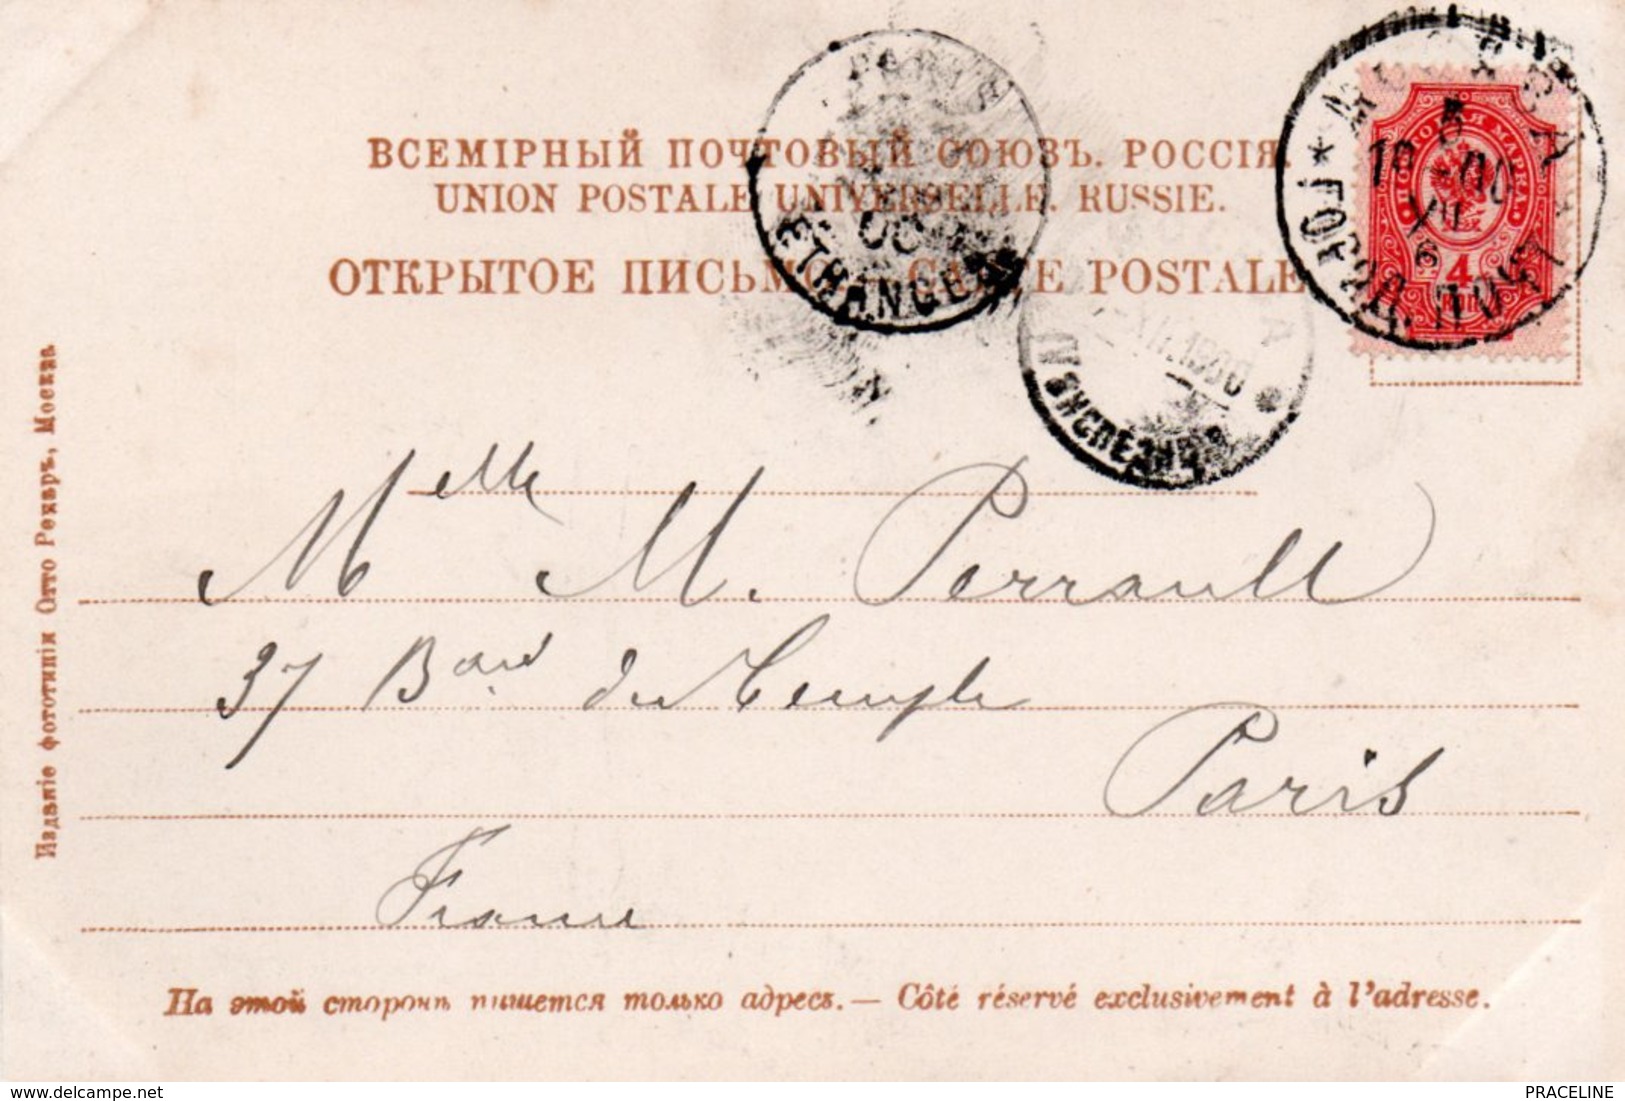 ВСЕМІРНЫЙ ПОЧТОВЫЙ СОЮЗЪ. РОССІЯ.
UNION POSTALE UNIVERSELLE. RUSSIE.
ОТКРЫТОЕ ПИСЬМО. CARTE POSTALE
PARIS
00
ETRANGER
МОСКВА
5
XII
1900
ГОРОД. ПОЧТ
ПОЧТОВАЯ МАРКА
4
XII.1900
IV ЭКСПЕДИЦ
Melle M. Perrault
37 Bard du Temple
Paris
France
На этой сторонѣ пишется только адресъ. — Côté réservé exclusivement à l'adresse.
Изданіе фототипіи Отто Ренаръ, Москва.
www.delcampe.net
PRACELINE